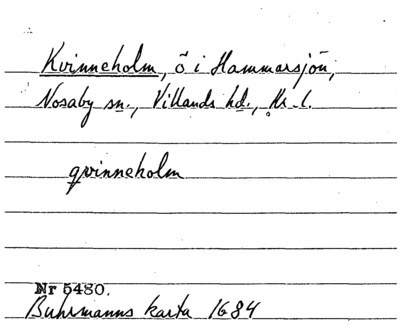 Kvinneholm, ö i Hammarsjön,
Nosaby sn., Villands hd., Kr. l.
qvinneholm
Nr 5480.
Buhrmanns karta 1684